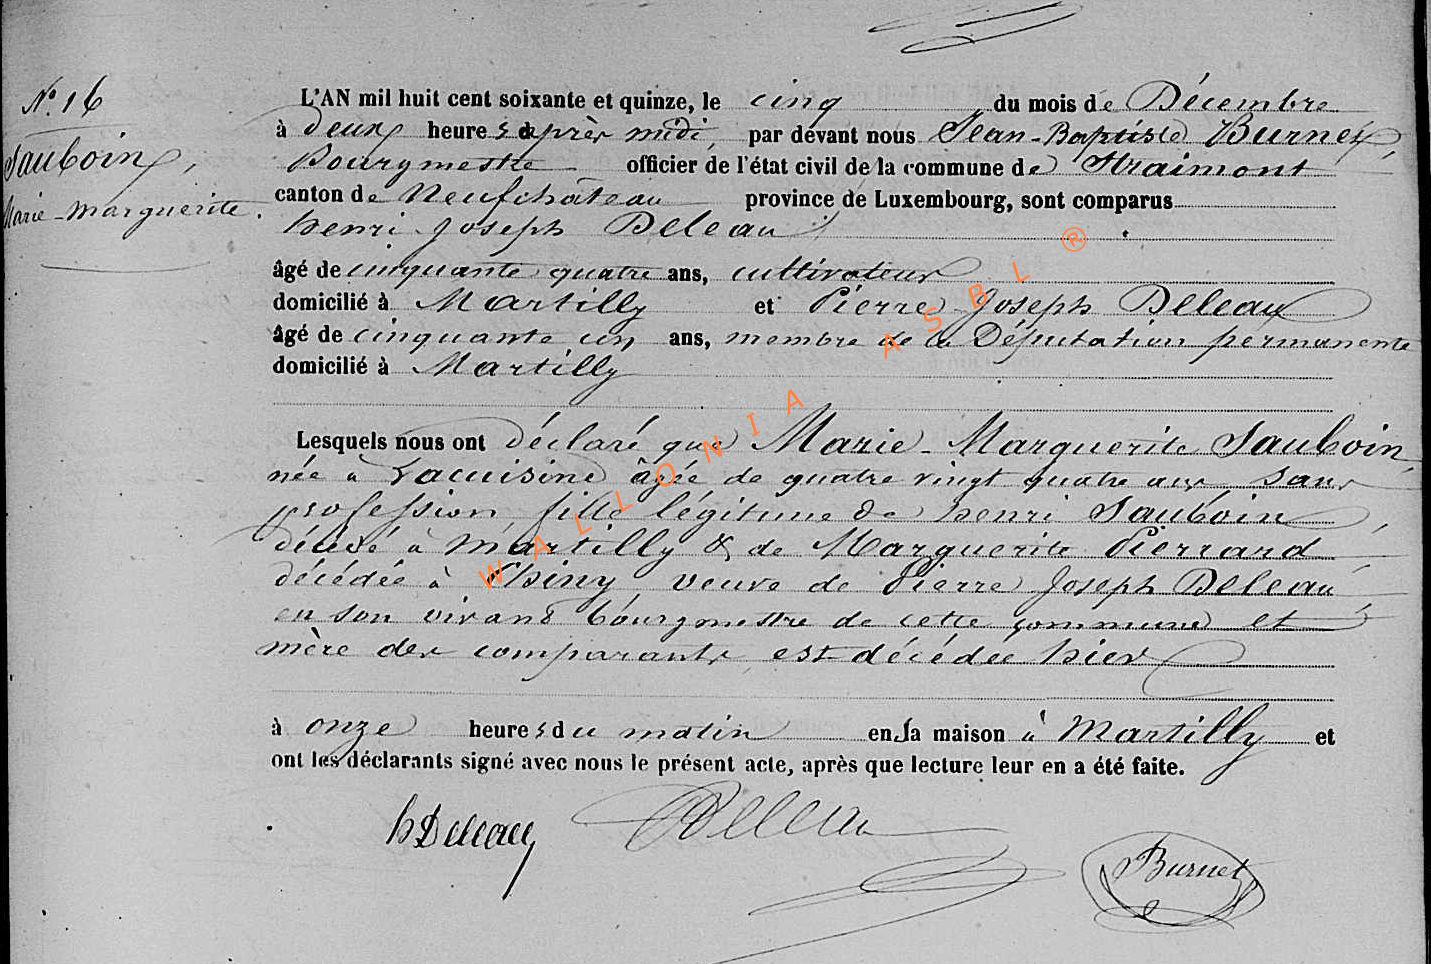 N° 16
Sauboin,
Marie-Marguerite.
L'AN mil huit cent soixante et quinze, le cinq du mois de Décembre
à deux heures après midi, par devant nous Jean-Baptiste Burnet,
Bourgmestre officier de l'état civil de la commune de Straimont
canton de Neufchâteau province de Luxembourg, sont comparus
henri Joseph Deleau
âgé de cinquante quatre ans, cultivateur
domicilié à Martilly et Pierre Joseph Deleau
âgé de cinquante un ans, membre de la Députation permanente
domicilié à Martilly
Lesquels nous ont déclaré que Marie-Marguerite Sauboin,
née à Lacuisine âgée de quatre vingt quatre ans sans
profession fille légitime de henri Sauboin,
décédé à Martilly & de Marguerite Pierrard
décédée à Chiny, veuve de Pierre Joseph Deleau,
en son vivant bourgmestre de cette commune et
mère des comparants, est décédée hier
à onze heures du matin en sa maison à Martilly et
ont les déclarants signé avec nous le présent acte, après que lecture leur en a été faite.
h Deleau Deleau
Burnet
WALLONIA ASBL ®